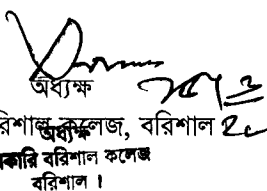 অধ্যক্ষ
রিশাল কলেজ, বরিশাল
অধ্যক্ষ
কারি বরিশাল কলেজ
বরিশাল ।